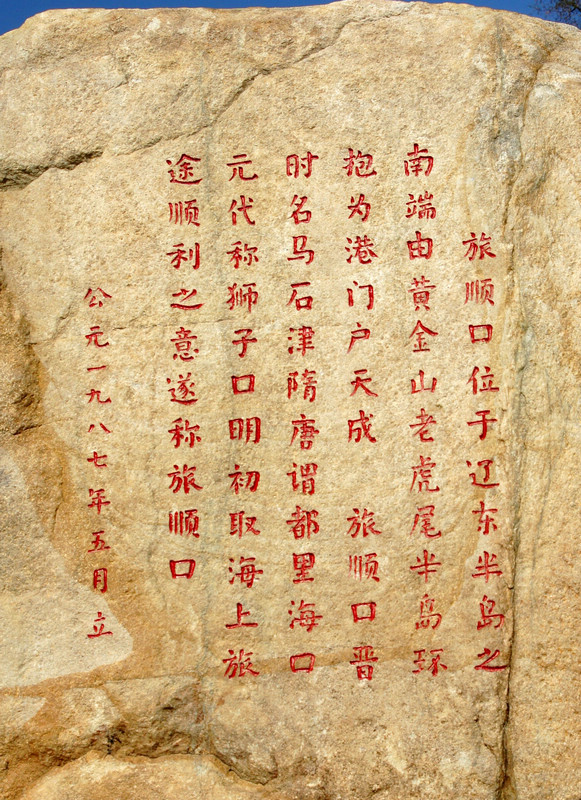 旅顺口位于辽东半岛之
南端由黄金山老虎尾半岛环
抱为港门户天成 旅顺口晋
时名马石津隋唐谓都里海口
元代称狮子口明初取海上旅
途顺利之意遂称旅顺口
公元一九八七年五月 立